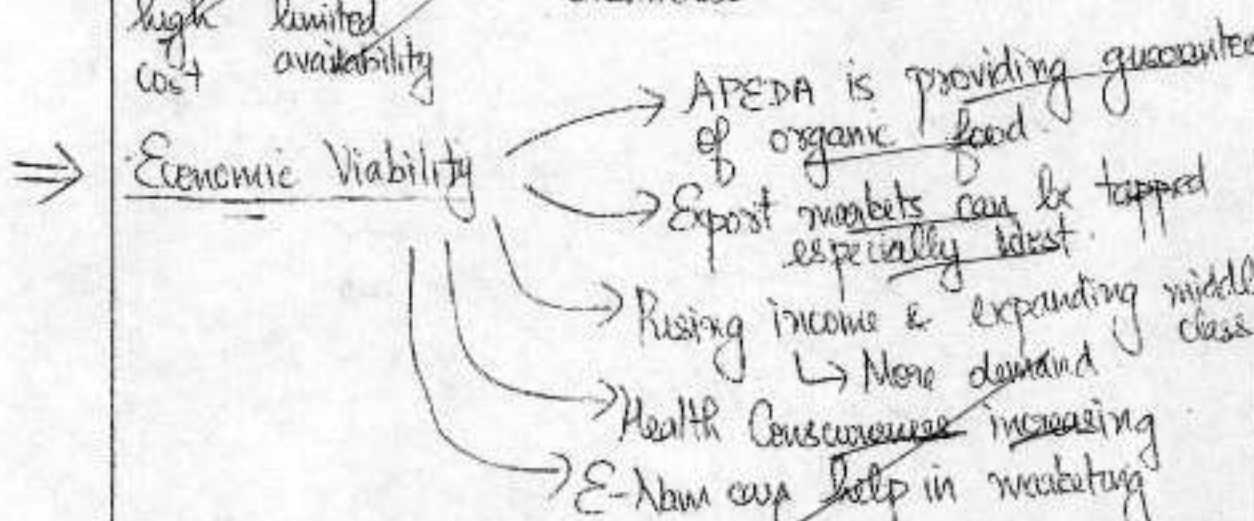 high limited
cost availability
APEDA is providing guarantee
of organic food.
⇒ Economic Viability
Export markets can be tapped
especially West.
Rising income & expanding middle
class
↳ More demand
Health Consciousness increasing
E-Nam can help in marketing